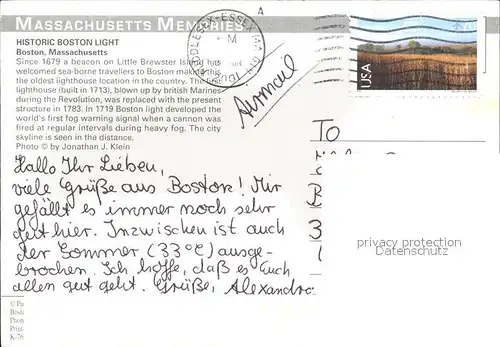 MASSACHUSETTS MEMORIES
HISTORIC BOSTON LIGHT
Boston, Massachusetts
Since 1679 a beacon on Little Brewster Island has
welcomed sea-borne travellers to Boston making this
the oldest lighthouse location in the country. The first
lighthouse (built in 1713), blown up by british Marines
during the Revolution, was replaced with the present
structure in 1783. In 1719 Boston light developed the
world's first fog warning signal when a cannon was
fired at regular intervals during heavy fog. The city
skyline is seen in the distance.
Photo © by Jonathan J. Klein
A
MIDDLESEX-ESSEX MA
PM
Airmail
USA
TO
Hallo Ihr Lieben,
viele Grüße aus Boston! Mir
gefällt es immer noch sehr
gut hier. Inzwischen ist auch
der Sommer (33°C) ausge-
brochen. Ich hoffe, daß es Euch
allen gut geht. Grüße, Alexandra
B
3
privacy protection
AnsichtskartenVersand.com
© Pu
Bosto
Phon
Print
K-76